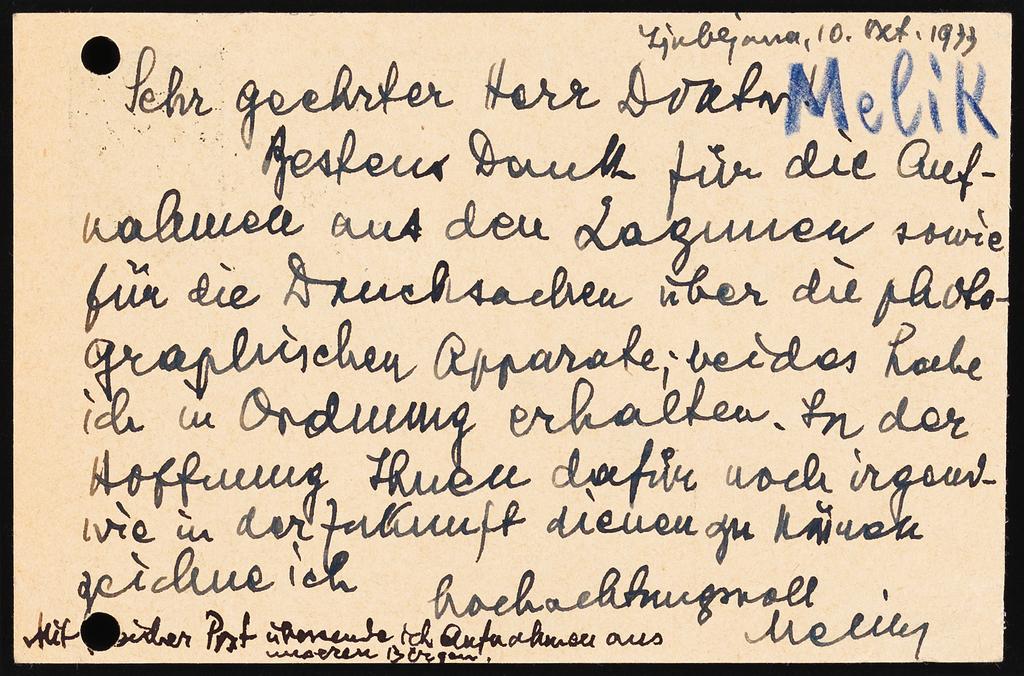 Ljubljana, 10. Okt. 1933
Sehr geehrter Herr Doktor
Melik
Bestens Dank für die Auf-
nahmen aus den Lagunen sowie
für die Drucksachen über die photo-
graphischen Apparate; beides habe
ich in Ordnung erhalten. In der
Hoffnung Ihnen dafür noch irgend-
wie in der Zukunft dienen zu können
zeichne ich
hochachtungsvoll
Mit Post übersende ich Aufnahmen aus
unseren Bergen.